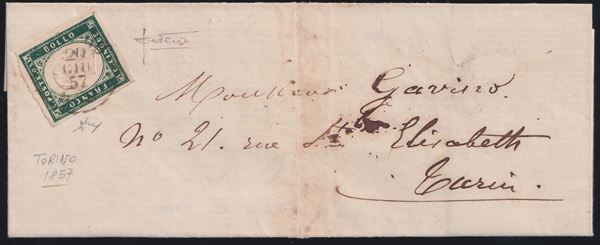 BOLLO
C. CINQUE
FRANCO
POSTALE
20
GIU
57
Monsieur Gavino
No 21. rue Ste Elisabeth
Turin.
TORINO
1857